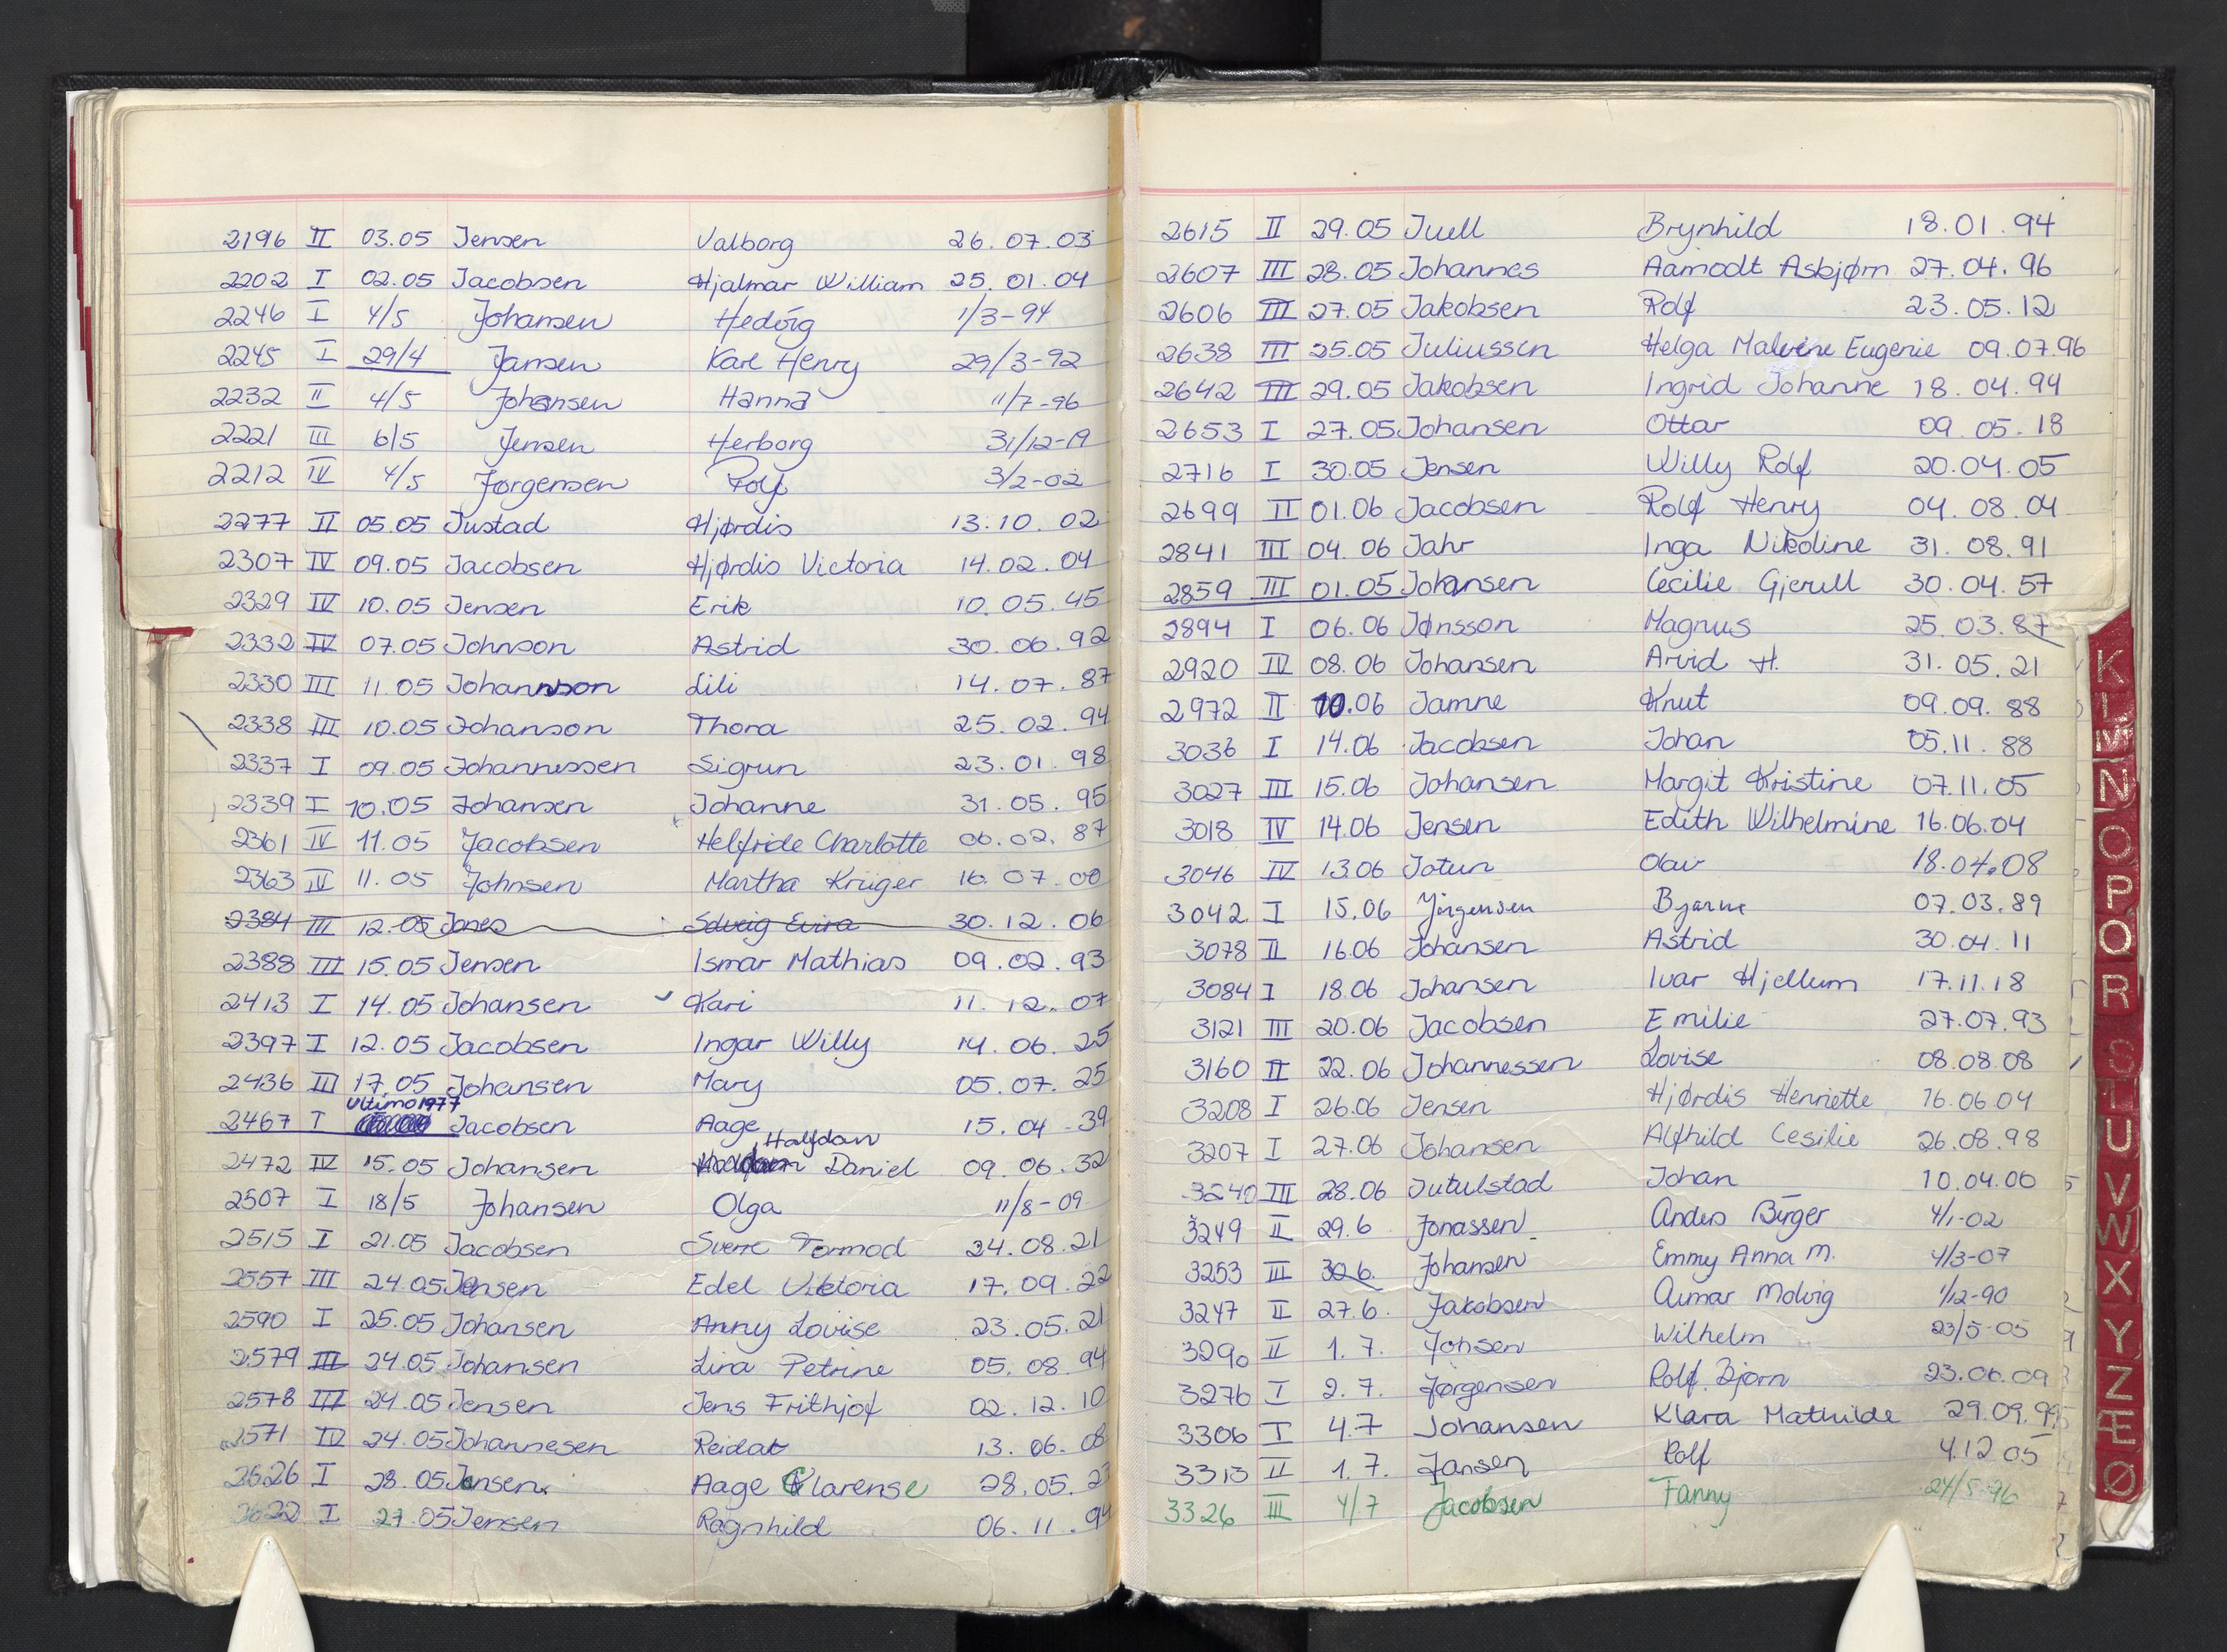 2196 II 03.05 Jensen Valborg 26.07.03
2202 I 02.05 Jacobsen Hjalmar William 25.01.04
2246 I 4/5 Johansen Hedvig 1/3-94
2245 I 29/4 Jansen Karl Henry 29/3-92
2232 II 4/5 Johansen Hanna 11/7-96
2221 III 6/5 Jensen Herborg 31/12-19
2212 IV 4/5 Jørgensen Rolf 3/2-02
2277 II 05.05 Justad Hjørdis 13.10.02
2307 IV 09.05 Jacobsen Hjørdis Victoria 14.02.04
2329 IV 10.05 Jensen Erik 10.05.45
2332 IV 07.05 Johnson Astrid 30.06.92
2330 III 11.05 Johannson Lili 14.07.87
2338 III 10.05 Johanson Thora 25.02.94
2337 I 09.05 Johannessen Sigrun 23.01.98
2339 I 10.05 Johansen Johanne 31.05.95
2361 IV 11.05 Jacobsen Helfride Charlotte 06.02.87
2363 IV 11.05 Johnsen Martha Krüger 16.07.00
2384 III 12.05 Jones Solveig Evira 30.12.06
2388 III 15.05 Jensen Ismar Mathias 09.02.93
2413 I 14.05 Johansen Kari 11.12.07
2397 I 12.05 Jacobsen Ingar Willy 14.06.25
2436 III 17.05 Johansen Mary 05.07.25
Ultimo 1977
2467 I Jacobsen Aage 15.04-39
Halfdan
2472 IV 15.05 Johansen Daniel 09.06.32
2507 I 18/5 Johansen Olga 11/8-09
2515 I 21.05 Jacobsen Sverre Tormod 24.08.21
2557 III 24.05 Jensen Edel Viktoria 17.09.22
2590 I 25.05 Johansen Anny Lovise 23.05.21
2579 III 24.05 Johansen Lina Petrine 05.08.94
2578 III 24.05 Jensen Jens Frithjof 02.12.10
2571 IV 24.05 Johannesen Reidar 13.06.08
2626 I 28.05 Jensen Aage Clarense 28.05.2
2622 I 27.05 Jensen Ragnhild 06.11.94
2615 II 29.05 Juell Brynhild 18.01.94
2607 III 28.05 Johannes Aamodt Asbjørn 27.04.96
2606 III 27.05 Jakobsen Rolf 23.05.12
2638 III 25.05 Juliussen Helga Malvine Eugenie 09.07.96
2642 III 29.05 Jakobsen Ingrid Johanne 18.04.94
2653 I 27.05 Johansen Ottar 09.05.18
2716 I 30.05 Jensen Willy Rolf 20.04.05
2699 II 01.06 Jacobsen Rolf Henry 04.08.04
2841 III 04.06 Jahr Inga Nikoline 31.08.91
2859 III 01.05 Johansen Cecilie Gjerull 30.04.57
2894 I 06.06 Jønsson Magnus 25.03.87
2920 IV 08.06 Johansen Arvid H. 31.05.21
2972 II 10.06 Jamne Knut 09.09.88
3036 I 14.06 Jacobsen Johan 05.11.88
3027 III 15.06 Johansen Margit Kristine 07.11.05
3018 IV 14.06 Jensen Edith Wilhelmine 16.06.04
3046 IV 13.06 Jotun Olav 18.04.08
3042 I 15.06 Jörgensen Bjarne 07.03.89
3078 II 16.06 Johansen Astrid 30.04.11
3084 I 18.06 Johansen Ivar Hjellum 17.11.18
3121 III 20.06 Jacobsen Emilie 27.07.93
3160 II 22.06 Johannessen Lovise 08.08.08
3208 I 26.06 Jensen Hjørdis Henriette 16.06.04
3207 I 27.06 Johansen Alfhild Cesilie 26.08.98
3240 III 28.06 Jutulstad Johan 10.04.00
3249 II 29.6 Jonassen Anders Birger 4/1-02
3253 III 30.6. Johansen Emmy Anna M. 4/3-07
3247 II 27.6. Jakobsen Aimar Molvig 1/12-90
3290 II 1.7. Johsen Wilhelm 23/5-05
3276 I 2.7. Jørgensen Rolf Bjørn 23.06.09
3306 I 4.7 Johansen Klara Mathilde 29.09.95
3313 II 1.7. Jansen Rolf 4.12 05
3326 III 4/7 Jacobsen Fanny 24/5-96
K
L
M
N
O
P
Q
R
S
T
U
V
W
X
Y
Z
Æ
Ø